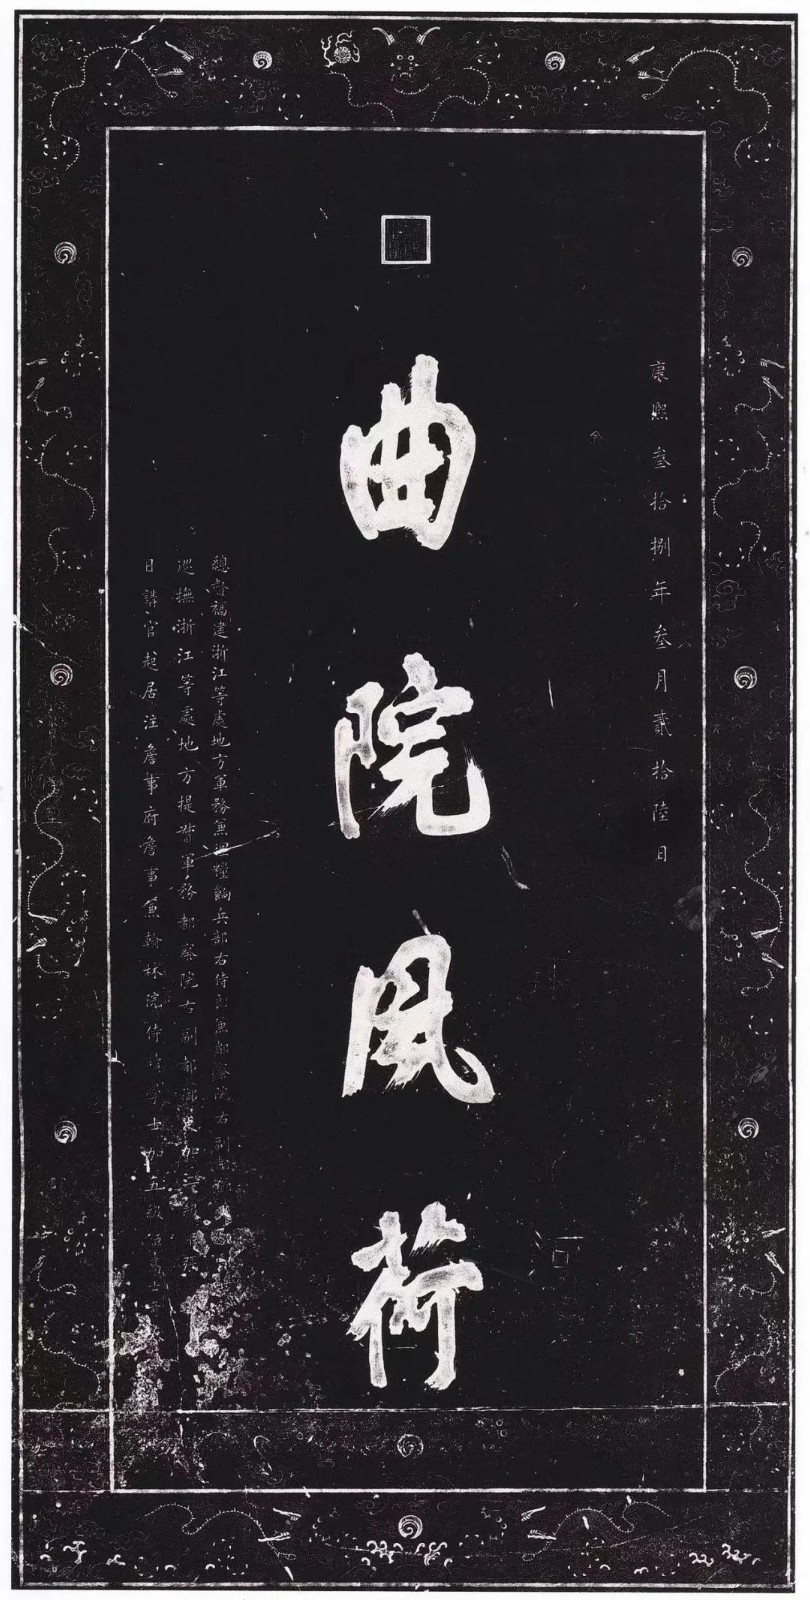 康熙叁拾捌年叁月貳拾陸日
曲院風荷
總督福建浙江等處地方軍務兼理糧餉兵部右侍郎兼都察院右副都御
巡撫浙江等處地方提督軍務都察院右副都御史加
日講官起居注詹事府詹事兼翰林院侍讀學士加五級